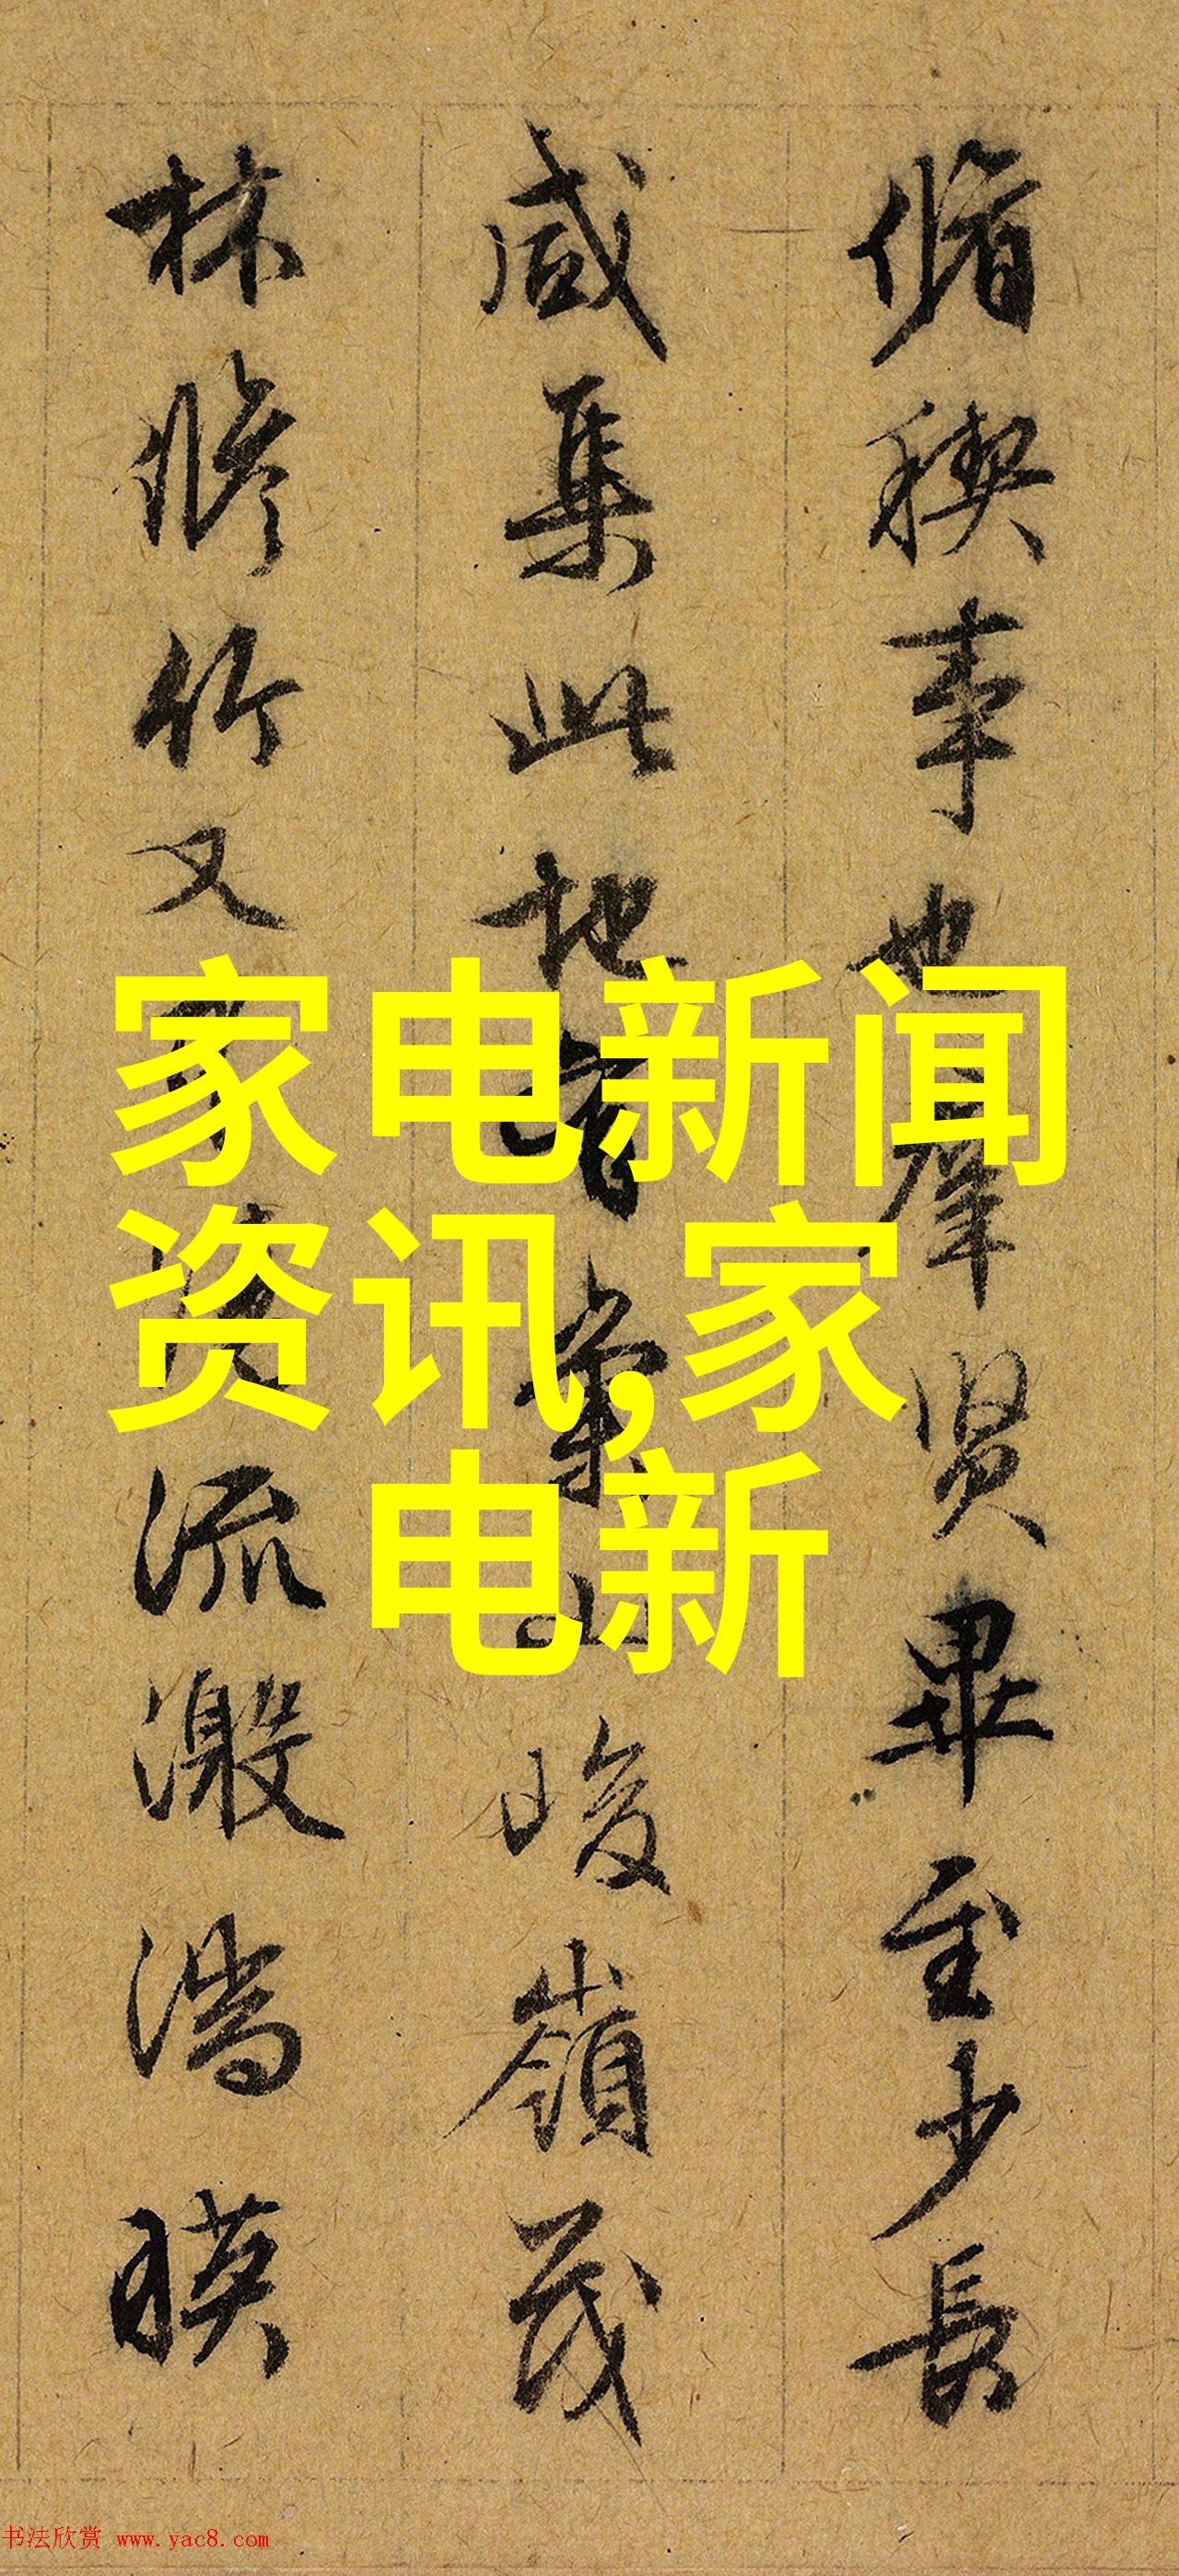 脩稧事也羣贤畢至少長
咸集此地有崇山峻嶺茂
林脩竹又有清流激湍暎
家电新闻
资讯,家
电新
书法欣赏 www.yac8.com